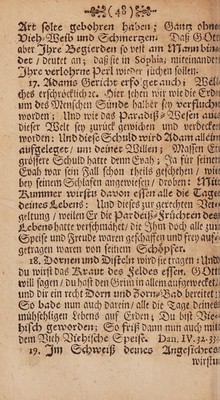 (48)
Art solte gebohren haben; Gantz ohne
Vieh-Weiß und Schmertzen. Daß GOtt
aber Ihre Begierden so vest am Mann bin-
det / deutet an; daß sie in Sophia, miteinander
Ihre verlohrne Perl wieder suchen sollen.
17. Adams Gericht ergo er auch; Wel-
ches erschröcklich. Hier sehen wir die Erd
um des Menschen Sünde halber sey verflucht
worden; Und wie das Paradiß-Wesen aus
dieser Welt sey zurück gewichen und verdeckt
worden: Und diese Schuld wird Adam allein
aufgeleget / um seiner Willen; Massen Er
grössere Schuld hatte denn Evah; Ja für seinen
Evah war sein Fall schon theils geschehen / wie
bey seinem Schlafen angewiesen / drobē. Mit
Kummer wirstu davon essen alle die Tage
deines Lebens: Und dieses zur gerechten Ver-
geltung / weilen Er die Pardeiß-Früchten des
Lebens hatte verschmähet / die Ihm doch alle zur
Speise und Freude waren geschaffen und frey auf-
getragen waren von seinem Schöpfer.
18. Dornen und Disteln wird sie tragen: Und
du wirst das Kraut des Feldes essen. GOtt
will sagen / du hast den Grim in allem aufgewecket /
und dir ein recht Dorn und Zorn-Bad bereitet;
So bade nun auch darein / alle die Tage deines
mühseligen Lebens auf Erden; Du bist Vie-
hisch geworden; So friß dann nun auch mit
dem Vieh Viehische Speise. Dan. IV. 32. 33.
19. Im Schweiß deines Angesichtes
wirstu